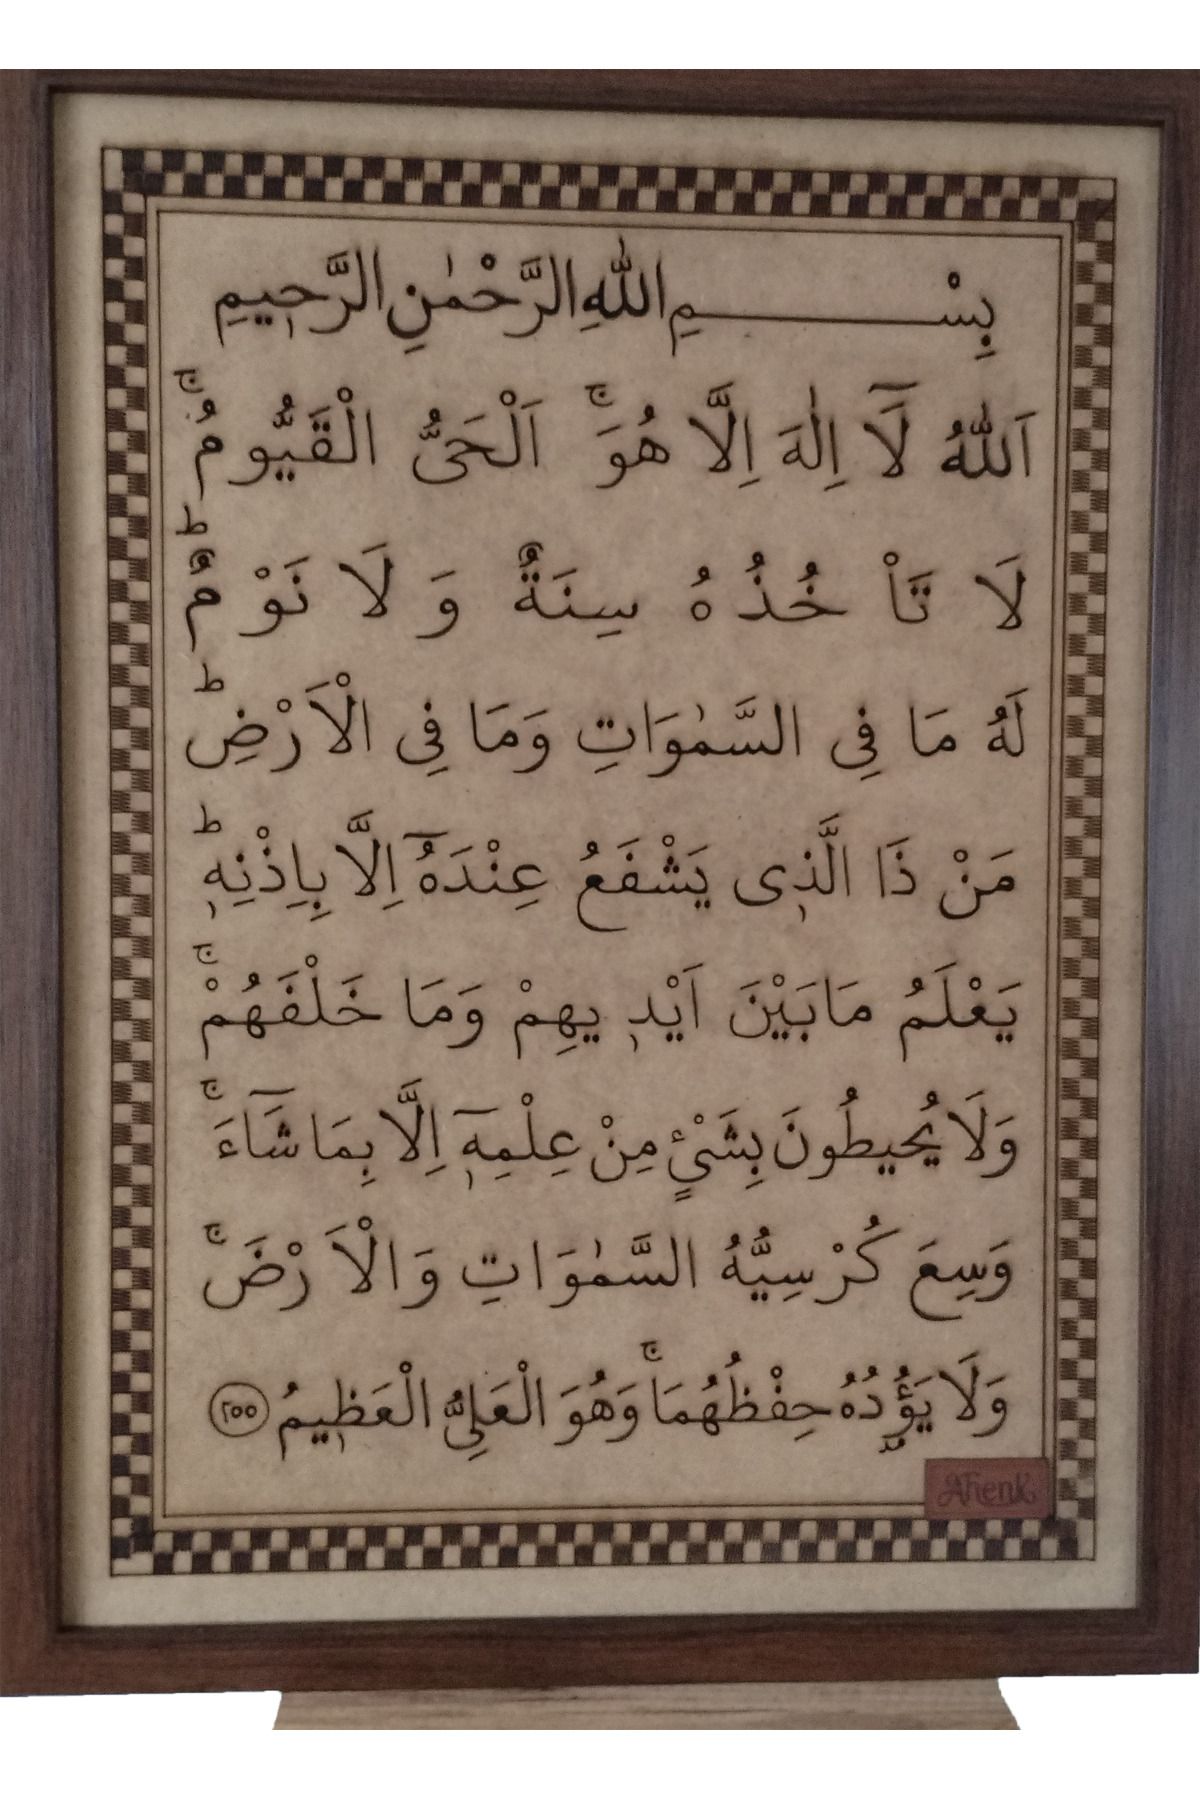 بِسْـــــــمِ اللّٰهِ الرَّحْمٰنِ الرَّحٖيمِ
اَللّٰهُ لَٓا اِلٰهَ اِلَّا هُوَۚ اَلْحَىُّ الْقَيُّومُۚ
لَا تَاْ خُذُ هُ سِنَةٌ وَ لَا نَوْ مٌؕ
لَهُ مَا فِى السَّمٰوَاتِ وَمَا فِى الْاَرْضِؕ
مَنْ ذَا الَّذٖى يَشْفَعُ عِنْدَهُٓ اِلَّا بِاِذْنِهٖؕ
يَعْلَمُ مَابَيْنَ اَيْدٖ يهِمْ وَمَا خَلْفَهُمْۚ
وَلَا يُحيطُونَ بِشَىْءٍ مِنْ عِلْمِهٖٓ اِلَّا بِمَا شَٓاءَۚ
وَسِعَ كُرْسِيُّهُ السَّمٰوَاتِ وَالْاَرْضَۚ
وَلَا يَؤُدُهُ حِفْظُهُمَاۚ وَهُوَ الْعَلِىُّ الْعَظٖيمُ ٢٥٥
Ahenk